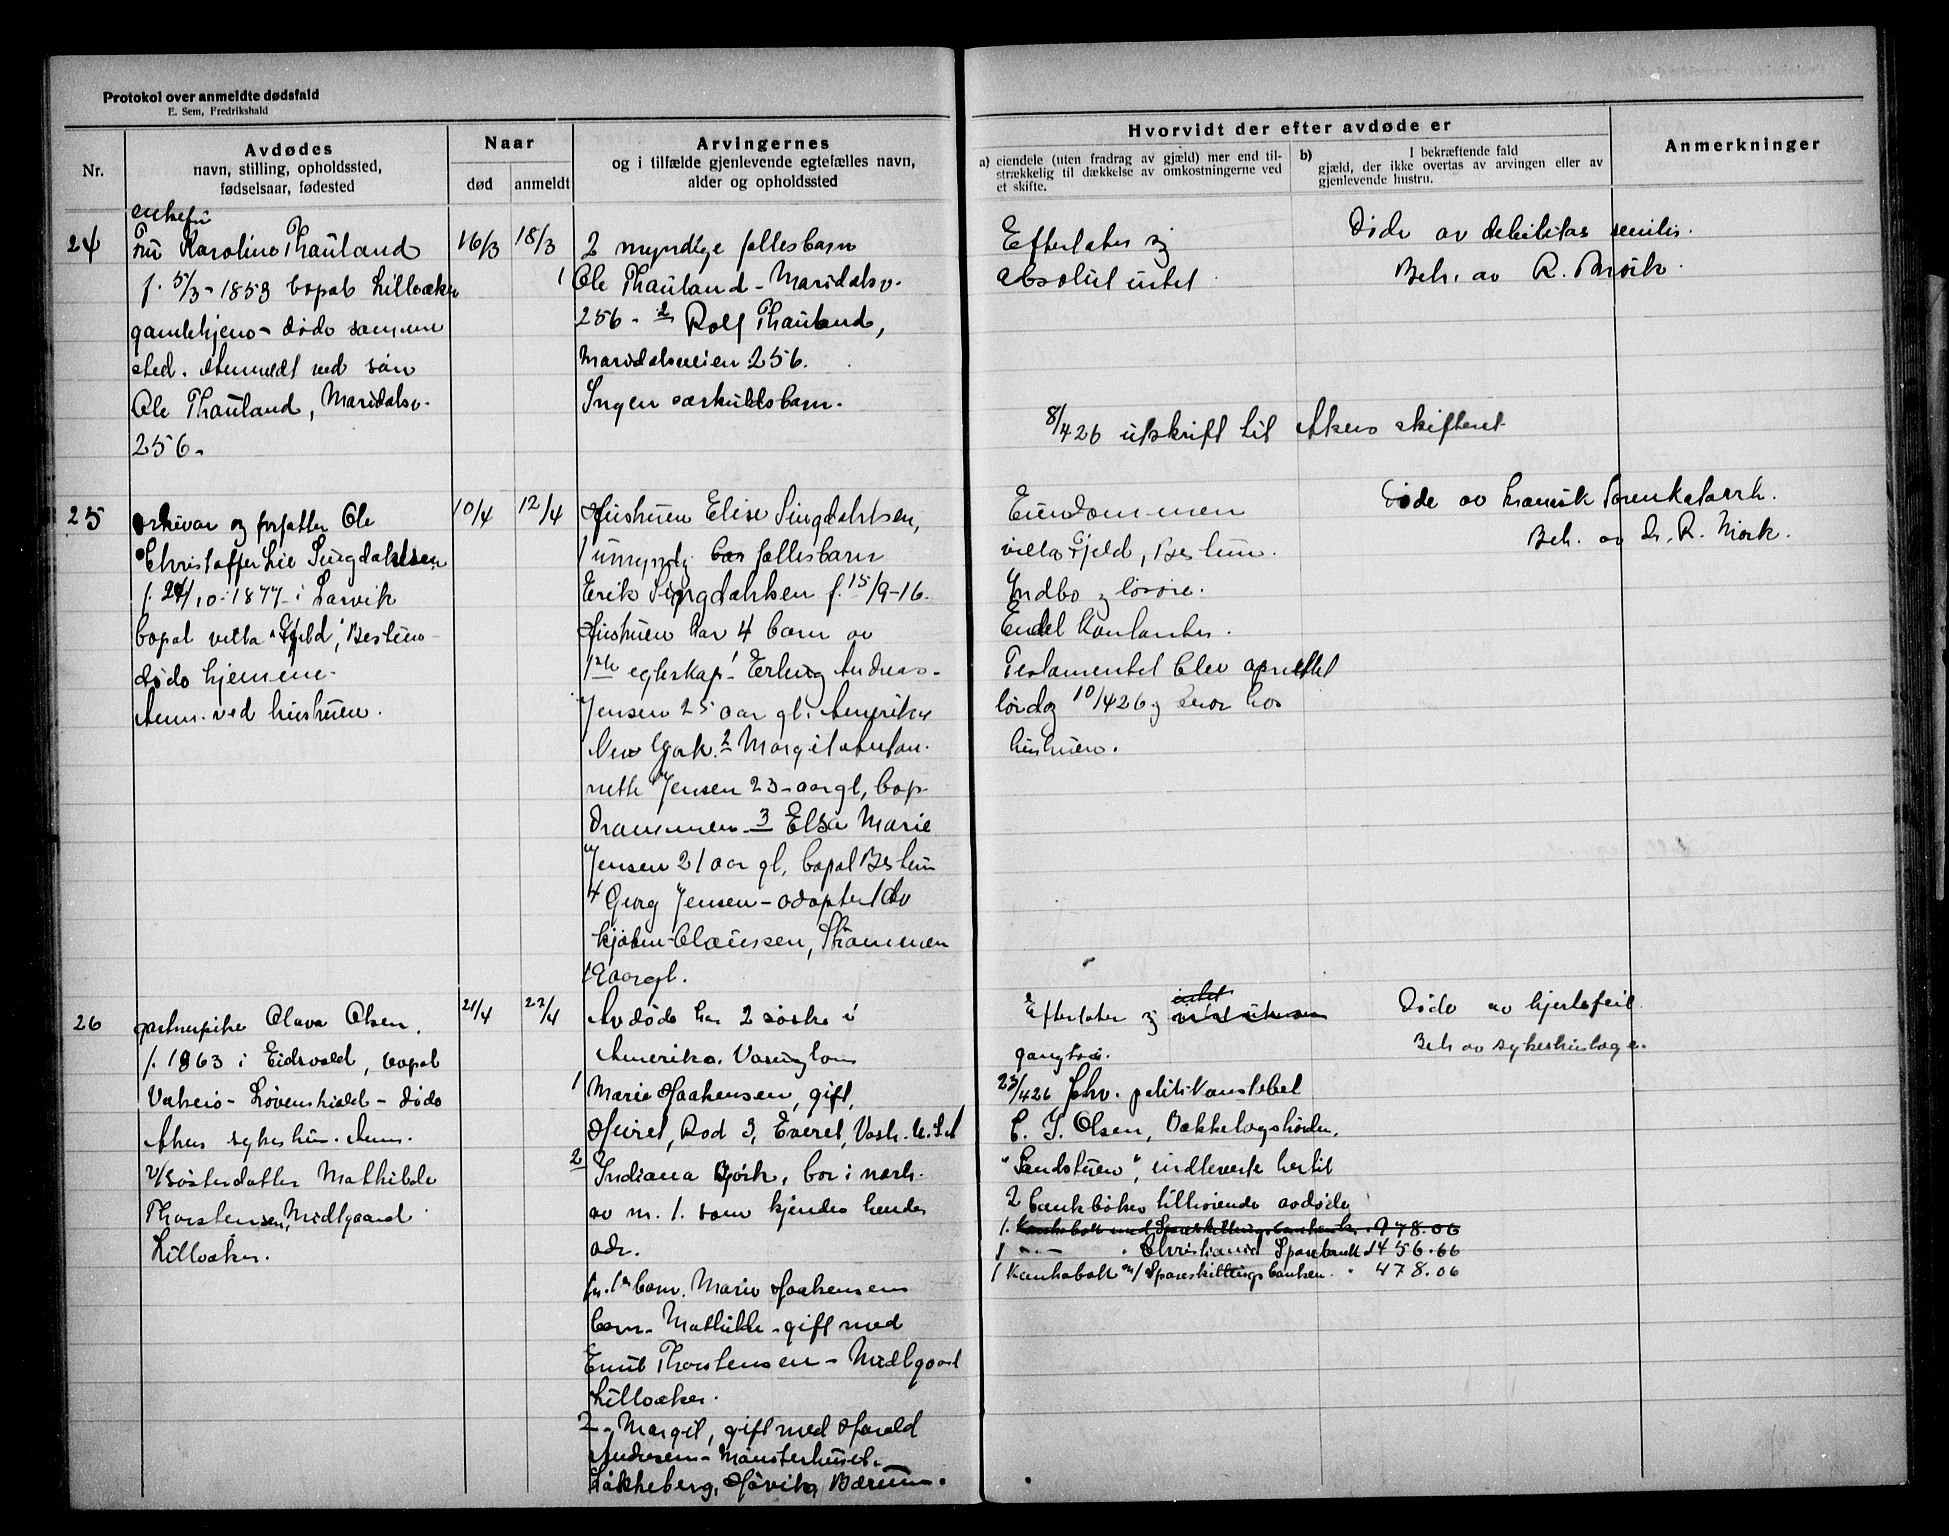 Protokol over anmeldte dødsfald
E. Sem, Fredrikshald
Nr.
Avdødes
navn, stilling, opholdssted,
fødselsaar, fødested
Naar
død
anmeldt
Arvingernes
og i tilfælde gjenlevende egtefælles navn,
alder og opholdssted
Hvorvidt der efter avdøde er
a) eiendele (uten fradrag av gjæld) mer end til-
strækkelig til dækkelse av omkostningerne ved
et skifte.
b) I bekræftende fald
gjæld, der ikke overtas av arvingen eller av
gjenlevende hustru.
Anmerkninger
24
enkefru
Fru Karoline Thauland
f. 5/3-1853 bopal Lilleaker
gamlehjem - døde samme
sted. Anmeldt ved søn
Ole Thauland, Maridalsv.
256.
16/3
18/3
2 myndige fællesbarn
1 Ole Thauland - Maridalsv.
256 - 2 Rolf Thauland,
Maridalsveien 256.
Ingen særkuldsbarn.
Efterlater sig
absolut intet
Døde av debilitas senilis.
Beh. av R. Mørk.
8/4 26 utskrift til Akers skifteret
25
arkivar og forfatter Ole
Christoffer Lie Singdahlsen
f. 24/10-1877 i Larvik
bopal villa "Fjeld", Bestum -
døde hjemme -
Anm. ved hustruen.
10/4
12/4
Hustruen Elise Singdahlsen,
1 umyndig fællesbarn
Erik Singdahlsen f. 15/9-16.
Hustruen har 4 barn av
1ste egteskap: 1 Erling Andreas
Jensen 25 aar gl. Amerika
New York. 2 Margit Antoi-
nette Jensen 23 aar gl, bop.
Drammen - 3 Elsa Marie
Jensen 21 aar gl, bopal Bestum
4 Georg Jensen - adoptert av
kjøbm. Claussen, Drammen
aar gl.
Eiendommen
villa Fjeld, Bestum.
Indbo og løsøre.
Endel kontanter.
Testamentet blev oprettet
lørdag 10/4 26 og beror hos
hustruen.
Døde av kronisk tarmkatarrh.
Beh. av dr. R. Mørk.
26
gartnerpike Olava Olsen,
f. 1863 i Eidsvold, bopal
Vækerø - Løvenskiold - døde
Akers sykehus. Anm.
v/ søsterdatter Mathilde
Thorstensen, Midtgaard
Lilleaker.
21/4
22/4
Avdøde har 2 søstre i
Amerika. Vasington
1 Marie Haakensen, gift,
Rod 3, Everet, Vash. U.S.A
2 Indiana Bjørk, bor i nærh.
av nr. 1. som kjender hendes
adr.
barn. Marie Haakensens
barn - Mathilde - gift med
Emil Thorstensen - Midtgaard
Lilleaker.
2 - Margit, gift med Harald
Andresen - Mønsterhuset
Løkkeberg, Høvik, Bærum.
Efterlater sig
gangklær.
23/4 26 politikonstabel
C. J. Olsen, Bækkelagshøiden,
"Sandstuen", indleverte hertil
2 bankbøker tilhørende avdøde
1. Kontrabok med Spareskillingsbanken. 478.06
1 - " - Christiania Sparebank 1456.66
1 Kontrabok m/ Spareskillingsbanken. " 478.06
Døde av hjertefeil.
Beh av sykehuslæge.